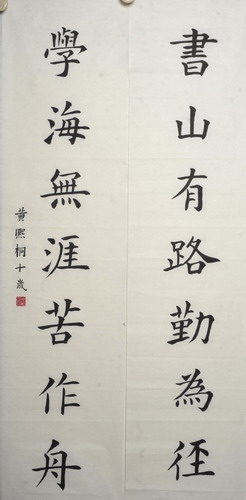 書山有路勤為径
學海無涯苦作舟
黄熙桐十歲